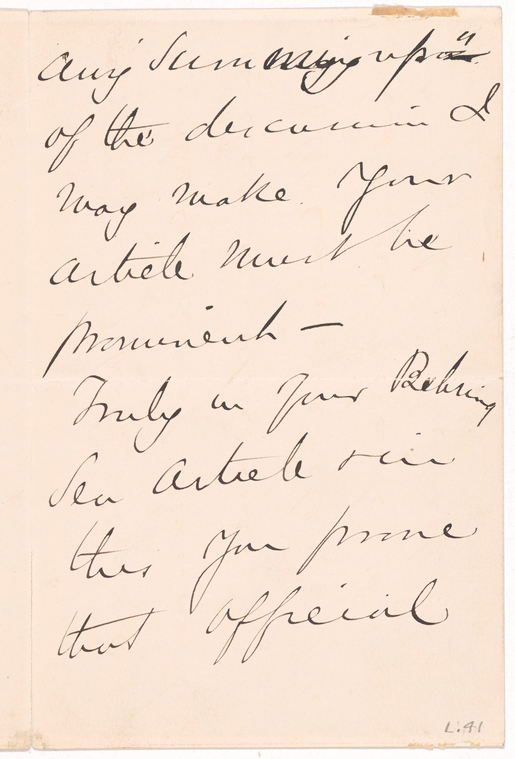 any summing up"
of the discussion I
may make. Your
article must be
prominent —
Truly in your Behring
Sea Article & in
this you prove
that official
L.41